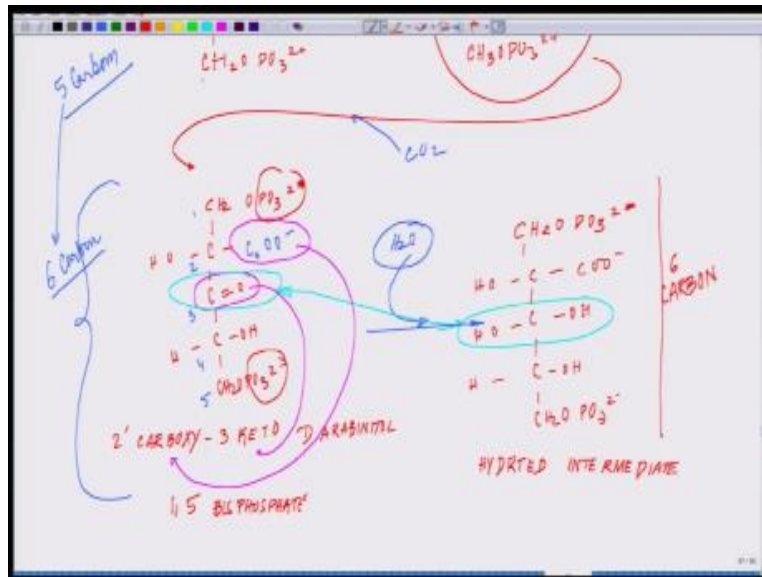 5 Carbon
CH2O PO3 2-
CH3OPO3 2-
CO2
6 Carbon
1 CH2 O PO3 2-
HO - C - COO-
2
C=O
3
H - C - OH
4
5 CH2O PO3 2-
2' CARBOXY - 3 KETO D ARABINTOL
1,5 BISPHOSPHATE
H2O
CH2O PO3 2-
HO - C - COO-
HO - C - OH
H - C - OH
CH2O PO3 2-
HYDRTED INTERMEDIATE
6
CARBON